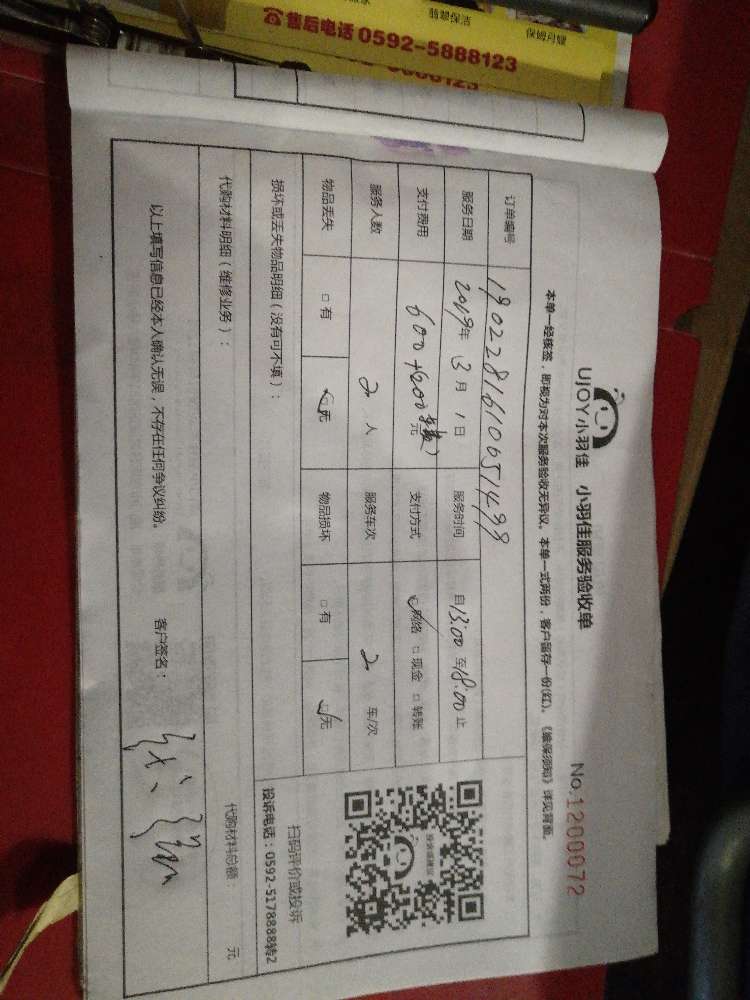 售后电话 0592-5888123
翡翠保洁
保姆月嫂
UJOY小羽佳 小羽佳服务验收单
No.1200072
本单一经核签，即视为对本次服务验收无异议。本单一式两份，客户留存一份(红)。《输保须知》详见背面。
订单编号 1902281610651498
服务日期 2019年 3月 1日 服务时间 自13:00 至18:00 止
支付费用 600+200 元 支付方式 □网络 □现金 □转账
服务人数 2 人 服务车次 2 车/次
物品丢失 □有 □无 物品损坏 □有 □无
扫码评价或投诉
投诉电话：0592-5178888转2
损坏或丢失物品明细（没有可不填）：
代购材料明细（维修业务）： 代购材料总额： 元
以上填写信息已经本人确认无误，不存在任何争议纠纷。 客户签名：